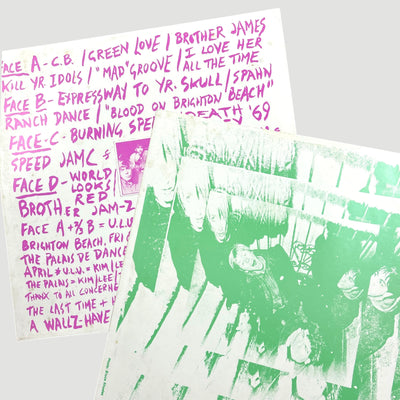 FACE A - C.B. / GREEN LOVE / BROTHER JAMES
KILL YR IDOLS / "MAD" GROOVE / I LOVE HER
ALL THE TIME
FACE B - EXPRESSWAY TO YR. SKULL / SPAHN
RANCH DANCE / "BLOOD ON BRIGHTON BEACH"
FACE-C - BURNING SPE DEATH '69
SPEED JAMC
FACE D - WORLD
LOOKS
RED
BROTHER JAM-Z
FACE A + ⅔ B = U.L.U.
BRIGHTON BEACH, FRI
THE PALAIS DE DANCE
APRIL # U.L.U. = KIM / LEE
THE PALAIS = KIM / LEE /
THANX TO ALL CONCERNE
THE LAST TIME +
A WALLZ-HAVE